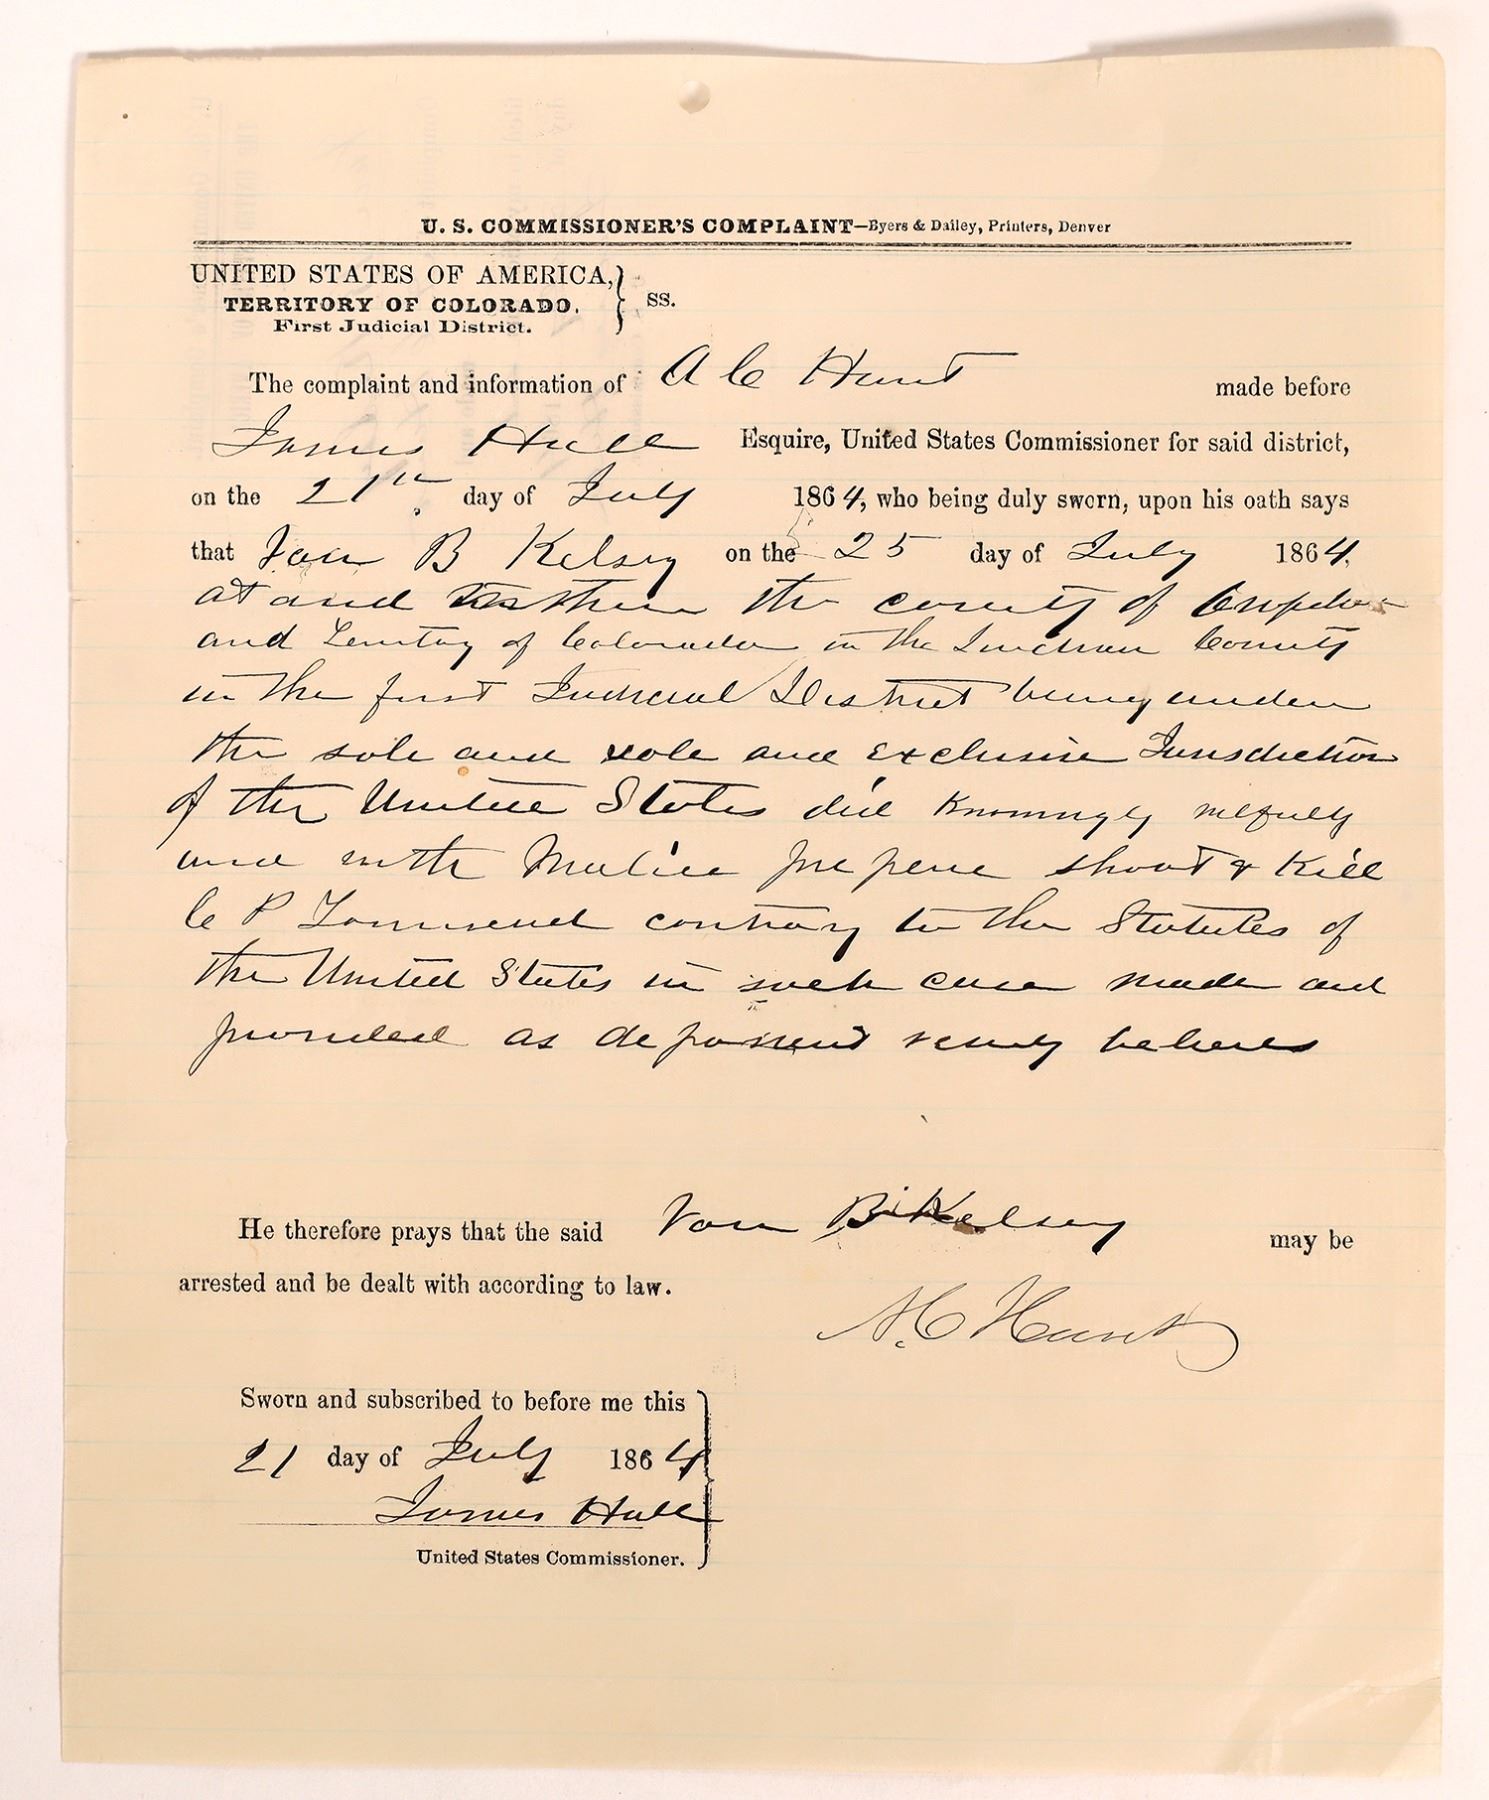 U. S. COMMISSIONER'S COMPLAINT—Byers & Dailey, Printers, Denver
UNITED STATES OF AMERICA,
TERRITORY OF COLORADO. } ss.
First Judicial District.
The complaint and information of A C Hunt made before
James Hall Esquire, United States Commissioner for said district,
on the 21st day of July 1864, who being duly sworn, upon his oath says
that Van B Kelsey on the 25 day of July 1864,
at and within the county of
and Territory of Colorado in the Indian County
in the first Judicial District being under
the sole and sole and exclusive Jurisdiction
of the United States did knowingly wilfully
and with Malice prepense shoot & Kill
C P Townsend contrary to the Statutes of
the United States in such case made and
provided as deponent verily believes
He therefore prays that the said Van B Kelsey may be
arrested and be dealt with according to law.
A. C Hunt
Sworn and subscribed to before me this
21 day of July 1864
James Hall
United States Commissioner.